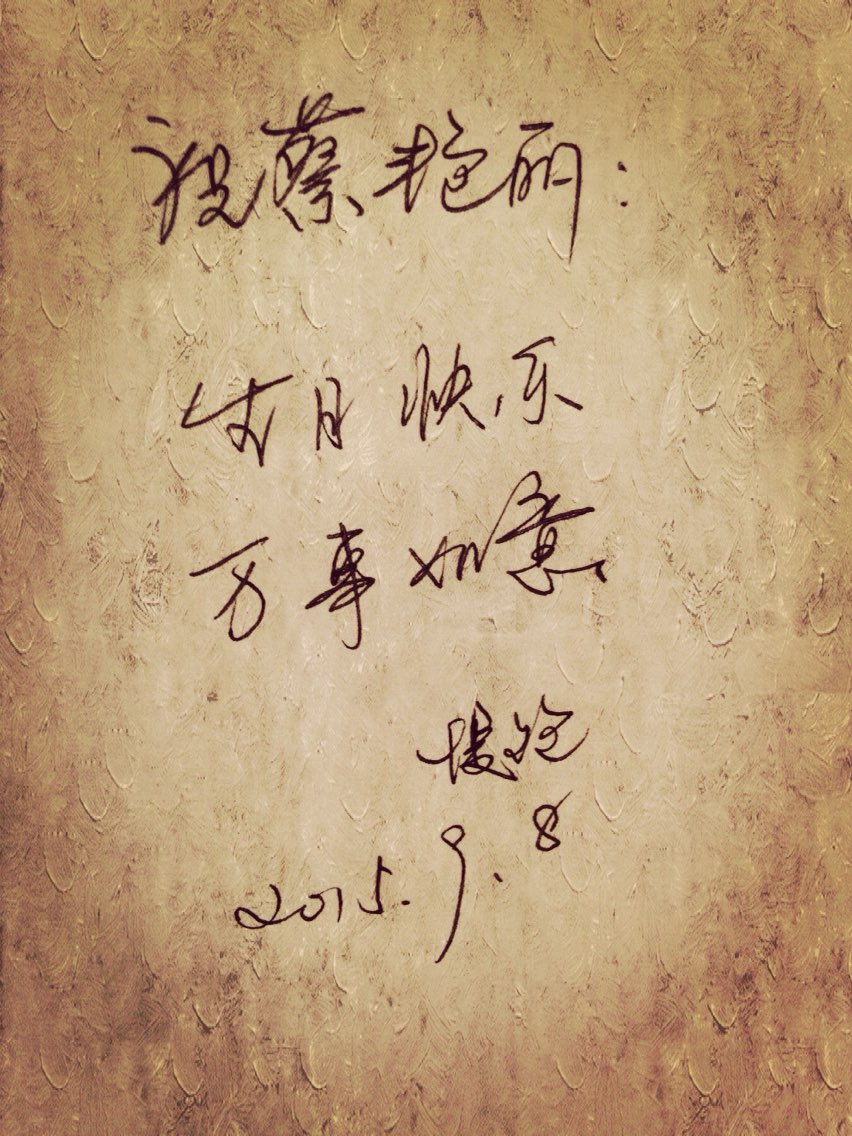 祝蔡艳丽：
生日快乐
万事如意
2015.9.8